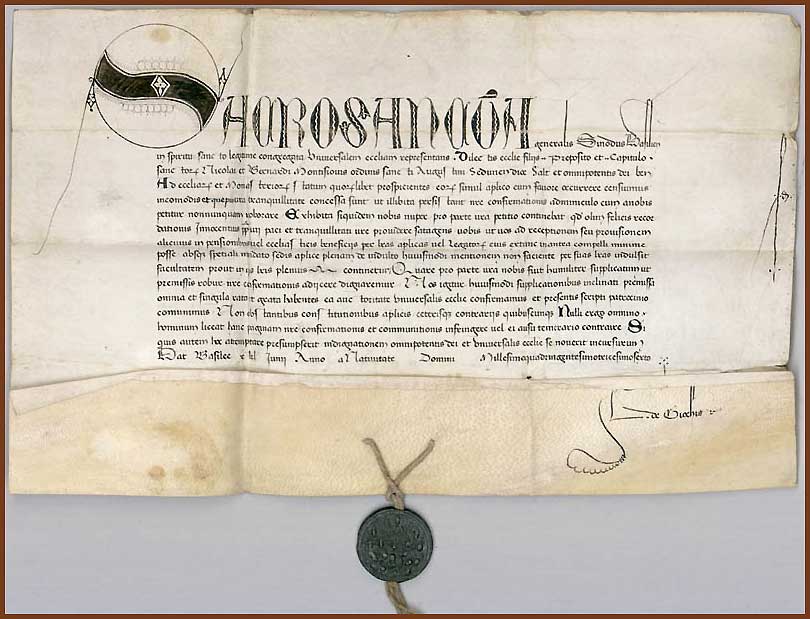 SACROSANCTA generalis Sinodus Basilien
in spiritu sancto legitime congregata Universalem eccliam representans Dilectis ecclie filiis Preposito et Capitulo
sanctorum Nicolai et Bernardi Montisiovis ordinis sancti Augustini Sedunen dioc Salt et omnipotentis dei ben
Ad ecclior et statum quorlibet prospicientes eor simul aplico cum favore occurrere censuimus
incomodis et que pro tranquillitate concessa sunt ut illibita persistant nre confirmationis adminiculo cum a nobis
petitur nonnunquam roborare Exhibita siquidem nobis nuper pro parte vra petitio continebat qd olim felicis recor
dationis Innocentius paci et tranquillitati vre providere satagens vobis ut vos ad receptionem seu provisionem
alicuius in pensionibus vel ecclias ticis beneficijs per lras aplicas vel legator eius extunc inantea compelli minime
posse absq speciali mandato sedis aplice plenam de indulto huiusmodi mentionem non faciente per suas lras indulsit
facultatem prout in ipsis lris plenius continetur Quare pro parte vra nobis fuit humiliter supplicatum ut
premissis robur nre confirmationis adijcere dignaremur Nos igitur huiusmodi supplicationibus inclinati premissa
omnia et singula rata et grata habentes ea auctoritate Universalis ecclie confirmamus et presentis scripti patrocinio
communimus Non obstantibus constitutionibus aplicis ceterisque contrarijs quibuscunque Nulli ergo omnino
hominum liceat hanc paginam nre confirmationis et communitionis infringere vel ei ausu temerario contraire Si
quis autem hoc attemptare presumpserit indignationem omnipotentis dei et Universalis ecclie se noverit incursurum
Dat Basilee kl Junij Anno a Nativitate Domini Millesimoquadringentesimotricesimosexto